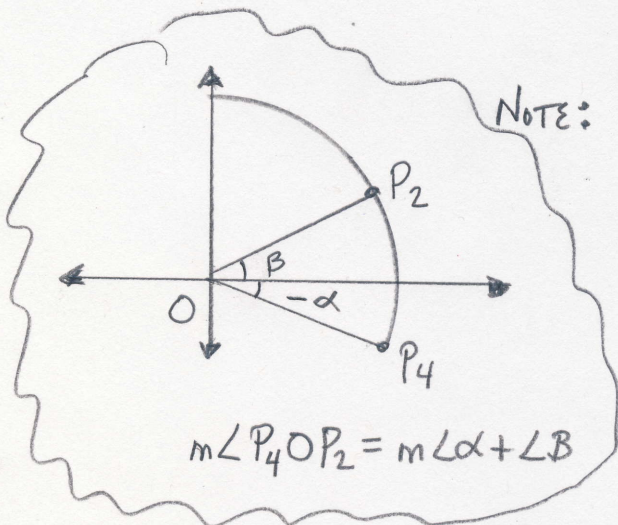 NOTE:
P2
B
O
-α
P4
m∠P4OP2 = m∠α+∠B